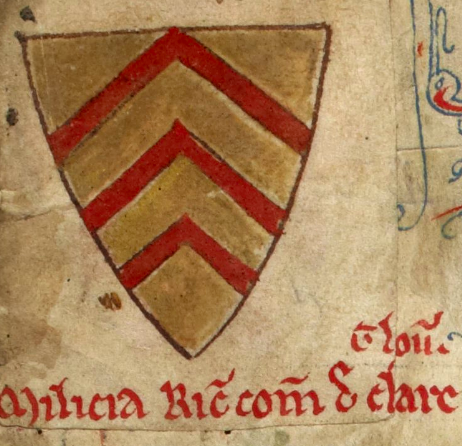 Glouē.
Milicia Ric̄ com̄ d̄ clare